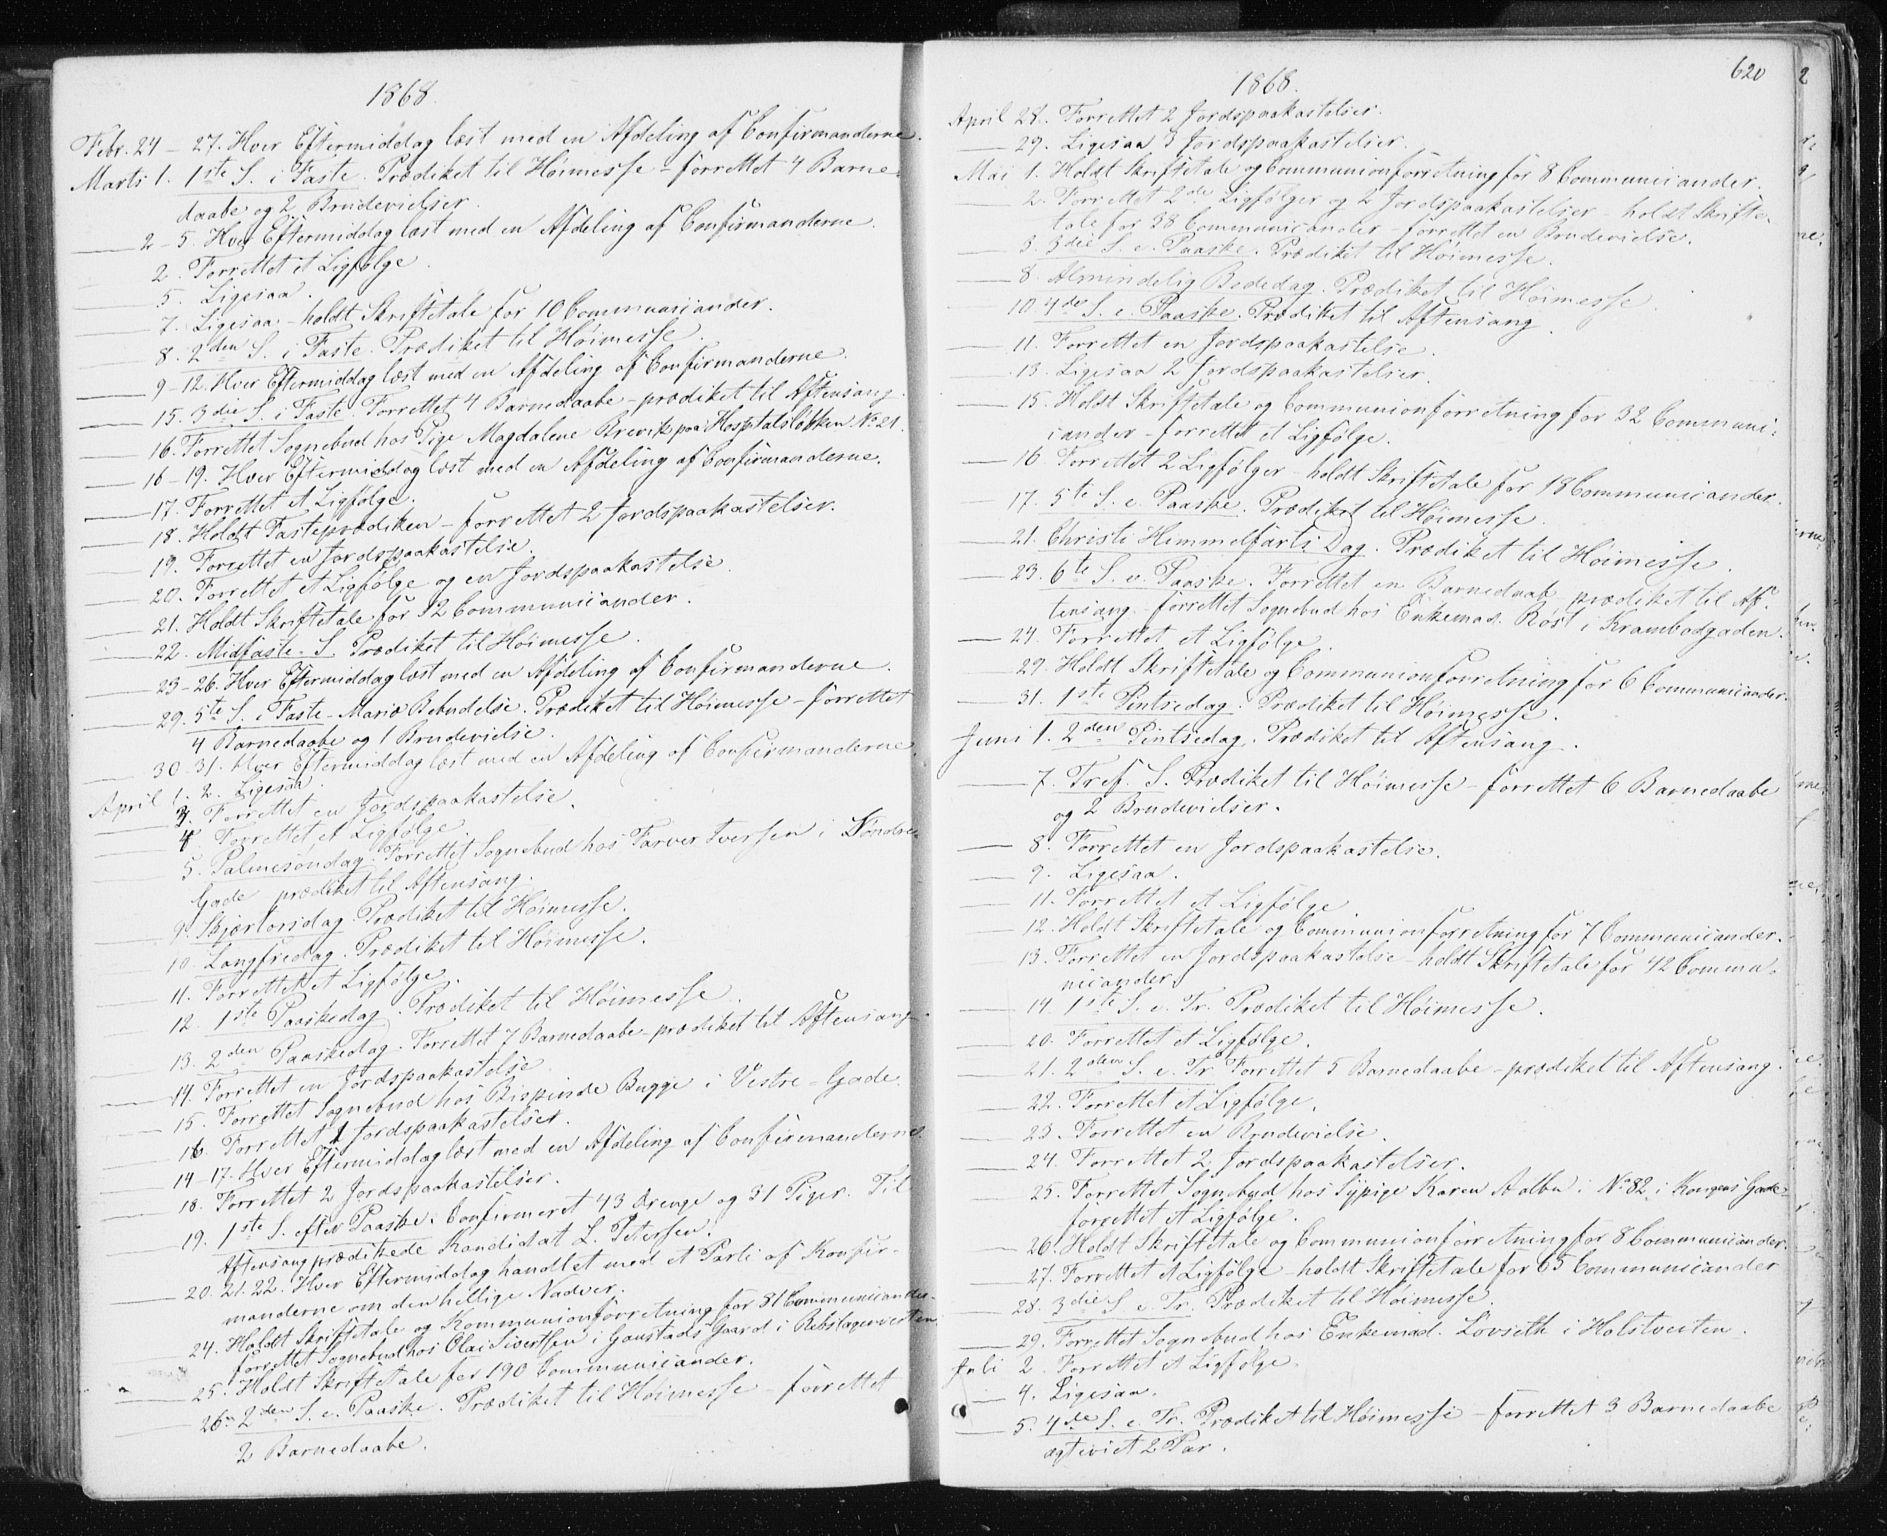 1868.
Febr. 24 - 27. Hver Eftermiddag læst med en Afdeling af Confirmanderne.
Marts 1. 1ste S. i Faste. Prædiket til Høimesse - forrettet 4 Barne-
daabe og 2 Brudevielser.
2 - 5. Hver Eftermiddag læst med en Afdeling af Confirmanderne.
2. Forrettet et Ligfølge.
5. Ligesaa.
7. Ligesaa - holdt Skriftetale for 10 Communicander.
8. 2den S. i Faste. Prædiket til Høimesse.
9 - 12. Hver Eftermiddag læst med en Afdeling af Confirmanderne.
15. 3die S. i Faste. Forrettet 4 Barnedaabe - prædiket til Aftensang.
16. Forrettet Sognebud hos Pige Magdalene Brevik paa Hospitalsløkken No 21.
16 - 19. Hver Eftermiddag læst med en Afdeling af Confirmanderne.
17. Forrettet et Ligfølge.
18. Holdt Fasteprædiken - forrettet 2 Jordspaakastelser.
19. Forrettet en Jordspaakastelse.
20. Forrettet et Ligfølge og en Jordspaakastelse.
21. Holdt Skriftetale for 32 Communicander.
22. Midfaste - S. Prædiket til Høimesse.
23 - 26. Hver Eftermiddag læst med en Afdeling af Confirmanderne.
29. 5te S. i Faste - Mariæ Bebudelse. Prædiket til Høimesse - forrettet
4 Barnedaabe og 1 Brudevielse.
30. 31. Hver Eftermiddag læst med en Afdeling af Confirmanderne.
April 1. 2. Ligesaa.
3. Forrettet en Jordspaakastelse.
4. Forrettet et Ligfølge.
5. Palmesøndag. Forrettet Sognebud hos Farver Iversen i Søndre
Gade prædiket til Aftensang.
9. Skjærtorsdag. Prædiket til Høimesse.
10. Langfredag. Prædiket til Høimesse.
11. Forrettet et Ligfølge.
12. 1ste Paaskedag. Prædiket til Høimesse.
13. 2den Paaskedag. Forrettet 7 Barnedaabe - prædiket til Aftensang.
14. Forrettet en Jordspaakastelse.
15. Forrettet Sognebud hos Bispinde Bugge i Vestre - Gade.
16. Forrettet Jordspaakastelser.
14 - 17. Hver Eftermiddag læst med en Afdeling af Confirmanderne.
18. Forrettet 2 Jordspaakastelser.
19. 1ste S. efter Paaske. Confirmeret 43 Drenge og 31 Piger. Til
Aftensang prædikede Kandidat L. Petersen.
20. 21. 22. Hver Eftermiddag handlet med et Parti af Konfir-
manderne om den hellige Nadver.
24. Holdt Skriftetale og Kommunionforretning for 81 Communicander.
forrettet Sognebud hos Olai Sivertsen i Gaustads Gaard i Rebslagerveiten
25. Holdt Skriftetale for 190 Communicander.
26. 2den S. e. Paaske. Prædiket til Høimesse - forrettet
2 Barnedaabe.
620
1868.
April 28. Forrettet 2 Jordspaakastelser.
29. Ligesaa 3 Jordspaakastelser.
Mai 1. Holdt Skriftetale og Communionforretning for 8 Communicander.
2. Forrettet 2de Ligfølger og 2 Jordspaakastelser - holdt Skrifte-
tale for 38 Communicander - forrettet en Brudevielse.
3. 3die S. e. Paaske. Prædiket til Høimesse.
8. Almindelig Bededag. Prædiket til Høimesse.
10. 4de S. e. Paaske. Prædiket til Aftensang.
11. Forrettet en Jordspaakastelse.
13. Ligesaa 2 Jordspaakastelser.
15. Holdt Skriftetale og Communionforretning for 32 Communi-
cander - forrettet et Ligfølge.
16. Forrettet 2 Ligfølger - holdt Skriftetale for 18 Communicander.
17. 5te S. e. Paaske. Prædiket til Høimesse.
21. Christi Himmelfarts Dag. Prædiket til Høimesse.
23. 6te S. e. Paaske. Forrettet en Barnedaab prædiket til Af-
tensang. forrettet Sognebud hos Enkemad. Røst i Krambodgaden.
24. Forrettet et Ligfølge.
29. Holdt Skriftetale og Communionforretning for 6 Communicander.
31. 1ste Pintsedag. Prædiket til Høimesse.
Juni 1. 2den Pintsedag. Prædiket til Aftensang.
7. Tref. S. Prædiket til Høimesse - forrettet 6 Barnedaabe
og 2 Brudevielser.
8. Forrettet en Jordspaakastelse.
9. Ligesaa.
11. Forrettet et Ligfølge
12. Holdt Skriftetale og Communionforretning for 7 Communicander.
13. Forrettet en Jordspaakastelse - holdt Skriftetale for 42 Commu-
nicander.
14. 1ste S. e. Tr. Prædiket til Høimesse.
20. Forrettet et Ligfølge.
21. 2den S. e. Tr. Forrettet 5 Barnedaabe - prædiket til Aftensang.
22. Forrettet et Ligfølge.
23. Forrettet en Brudevielse.
24. Forrettet 2 Jordspaakastelser.
25. Forrettet Sognebud hos Sypige Karen Aalbu i No 82 i Kongens Gade -
forrettet et Ligfølge.
26. Holdt Skriftetale og Communionforretning for 8 Communicander.
27. Forrettet et Ligfølge - holdt Skriftetale for 65 Communicander
28. 3die S. e. Tr. Prædiket til Høimesse.
29. Forrettet Sognebud hos Enkemad. Lovseth i Holstveiten.
Juli 2. Forrettet et Ligfølge.
4. Ligesaa.
5. 4de S. e. Tr. Prædiket til Høimesse - forrettet 3 Barnedaabe
ægteviet 2 Par.